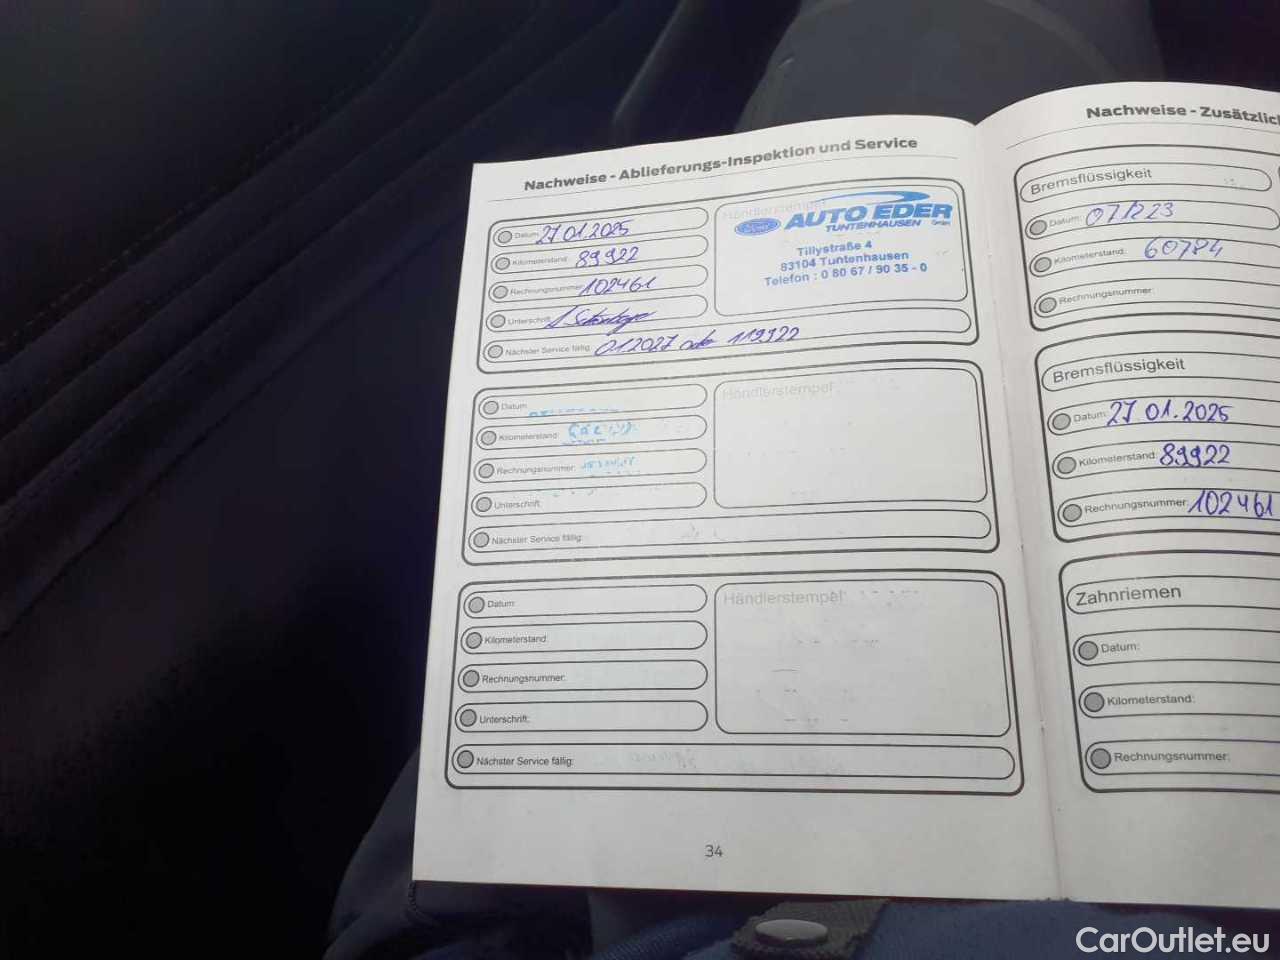 Nachweise - Ablieferungs-Inspektion und Service
Datum: 27.01.2025
Kilometerstand: 89922
Rechnungsnummer: 102461
Unterschrift:
Nächster Service fällig: 01.2027 oder 119922
Händlerstempel
Ford
AUTO EDER
TUNTENHAUSEN GmbH
Tillystraße 4
83104 Tuntenhausen
Telefon : 0 80 67 / 90 35 - 0
Datum:
Kilometerstand:
Rechnungsnummer:
Unterschrift:
Nächster Service fällig:
Händlerstempel
Datum:
Kilometerstand:
Rechnungsnummer:
Unterschrift:
Nächster Service fällig:
Händlerstempel
34
Nachweise - Zusätzlich
Bremsflüssigkeit
Datum: 07/223
Kilometerstand: 60784
Rechnungsnummer:
Bremsflüssigkeit
Datum: 27.01.2025
Kilometerstand: 89922
Rechnungsnummer: 102461
Zahnriemen
Datum:
Kilometerstand:
Rechnungsnummer:
CarOutlet.eu